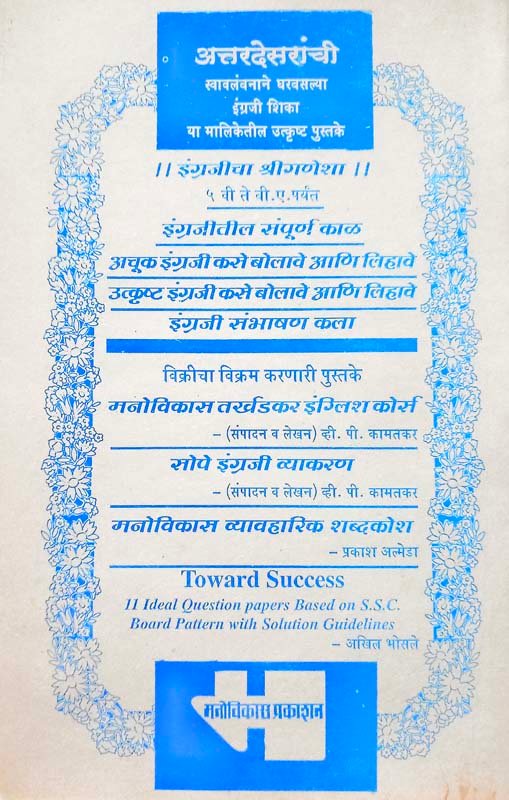 अत्तरदेसरांची
स्वावलंवनाने घरवसल्या
इंग्रजी शिका
या मालिकेतील उत्कृष्ट पुस्तके
।। इंग्रजीचा श्रीगणेशा ।।
५ वी ते वी.ए.पर्यंत
इंग्रजीतील संपूर्ण काळ
अचूक इंग्रजी कसे बोलावे आणि लिहावे
उत्कृष्ट इंग्रजी कसे बोलावे आणि लिहावे
इंग्रजी संभाषण कला
विक्रीचा विक्रम करणारी पुस्तके
मनोविकास तर्खडकर इंग्लिश कोर्स
– (संपादन व लेखन) व्ही. पी. कामतकर
सोपे इंग्रजी व्याकरण
– (संपादन व लेखन) व्ही. पी. कामतकर
मनोविकास व्यावहारिक शब्दकोश
– प्रकाश अल्मेडा
Toward Success
11 Ideal Question papers Based on S.S.C.
Board Pattern with Solution Guidelines
– अखिल भोसले
मनोविकास प्रकाशन